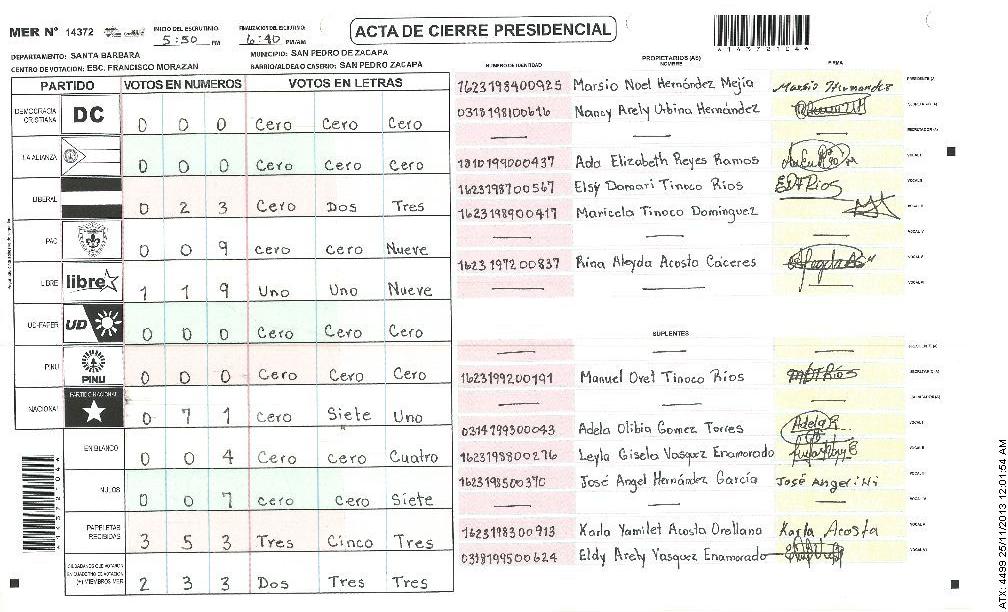 MER Nº 14372
INICIO DEL ESCRUTINIO 5:50 PM
FINALIZACION DEL ESCRUTINIO: 6:40 PM/AM
ACTA DE CIERRE PRESIDENCIAL
A143721044
DEPARTAMENTO: SANTA BARBARA
MUNICIPIO: SAN PEDRO DE ZACAPA
CENTRO DE VOTACION: ESC. FRANCISCO MORAZAN
BARRIO/ALDEA O CASERIO: SAN PEDRO ZACAPA
PARTIDO VOTOS EN NUMEROS VOTOS EN LETRAS
DEMOCRACIA CRISTIANA DC 0 0 0 Cero Cero Cero
LA ALIANZA 0 0 0 Cero Cero Cero
LIBERAL 0 2 3 Cero Dos Tres
PAC 0 0 9 cero Cero Nueve
LIBRE libre 1 1 9 Uno Uno Nueve
UD-FAPER UD 0 0 0 Cero Cero Cero
PINU PINU 0 0 0 Cero Cero Cero
NACIONAL PARTIDO NACIONAL 0 7 1 Cero Siete Uno
EN BLANCO 0 0 4 Cero Cero Cuatro
NULOS 0 0 7 Cero Cero Siete
PAPELETAS RECIBIDAS 3 5 3 Tres Cinco Tres
CIUDADANOS QUE VOTARON EN CUADERNO DE VOTACION (+) MIEMBROS MER 2 3 3 Dos Tres Tres
PROPIETARIOS (AS)
NUMERO DE IDENTIDAD NOMBRE FIRMA
1623198400925 Marsio Noel Hernández Mejía Marsio Hernandez
0318198100616 Nancy Arely Urbina Hernández
1810199000437 Ada Elizabeth Reyes Ramos
1623198700567 Elsy Damari Tinoco Rios EDTRios
1623198900417 Maricela Tinoco Dominguez
1623197200837 Rina Aleyda Acosta Caceres
SUPLENTES
1623199200191 Manuel Ovet Tinoco Rios
0314199300043 Adela Olibia Gomez Torres Adela
1623198800276 Leyla Gisela Vasquez Enamorado
1623198500370 José Angel Hernández García José Angel
1623198300913 Karla Yamilet Acosta Orellana Karla Acosta
0318199500624 Eldy Arely Vasquez Enamorado
ATX: 4499 25/11/2013 12:01:54 AM